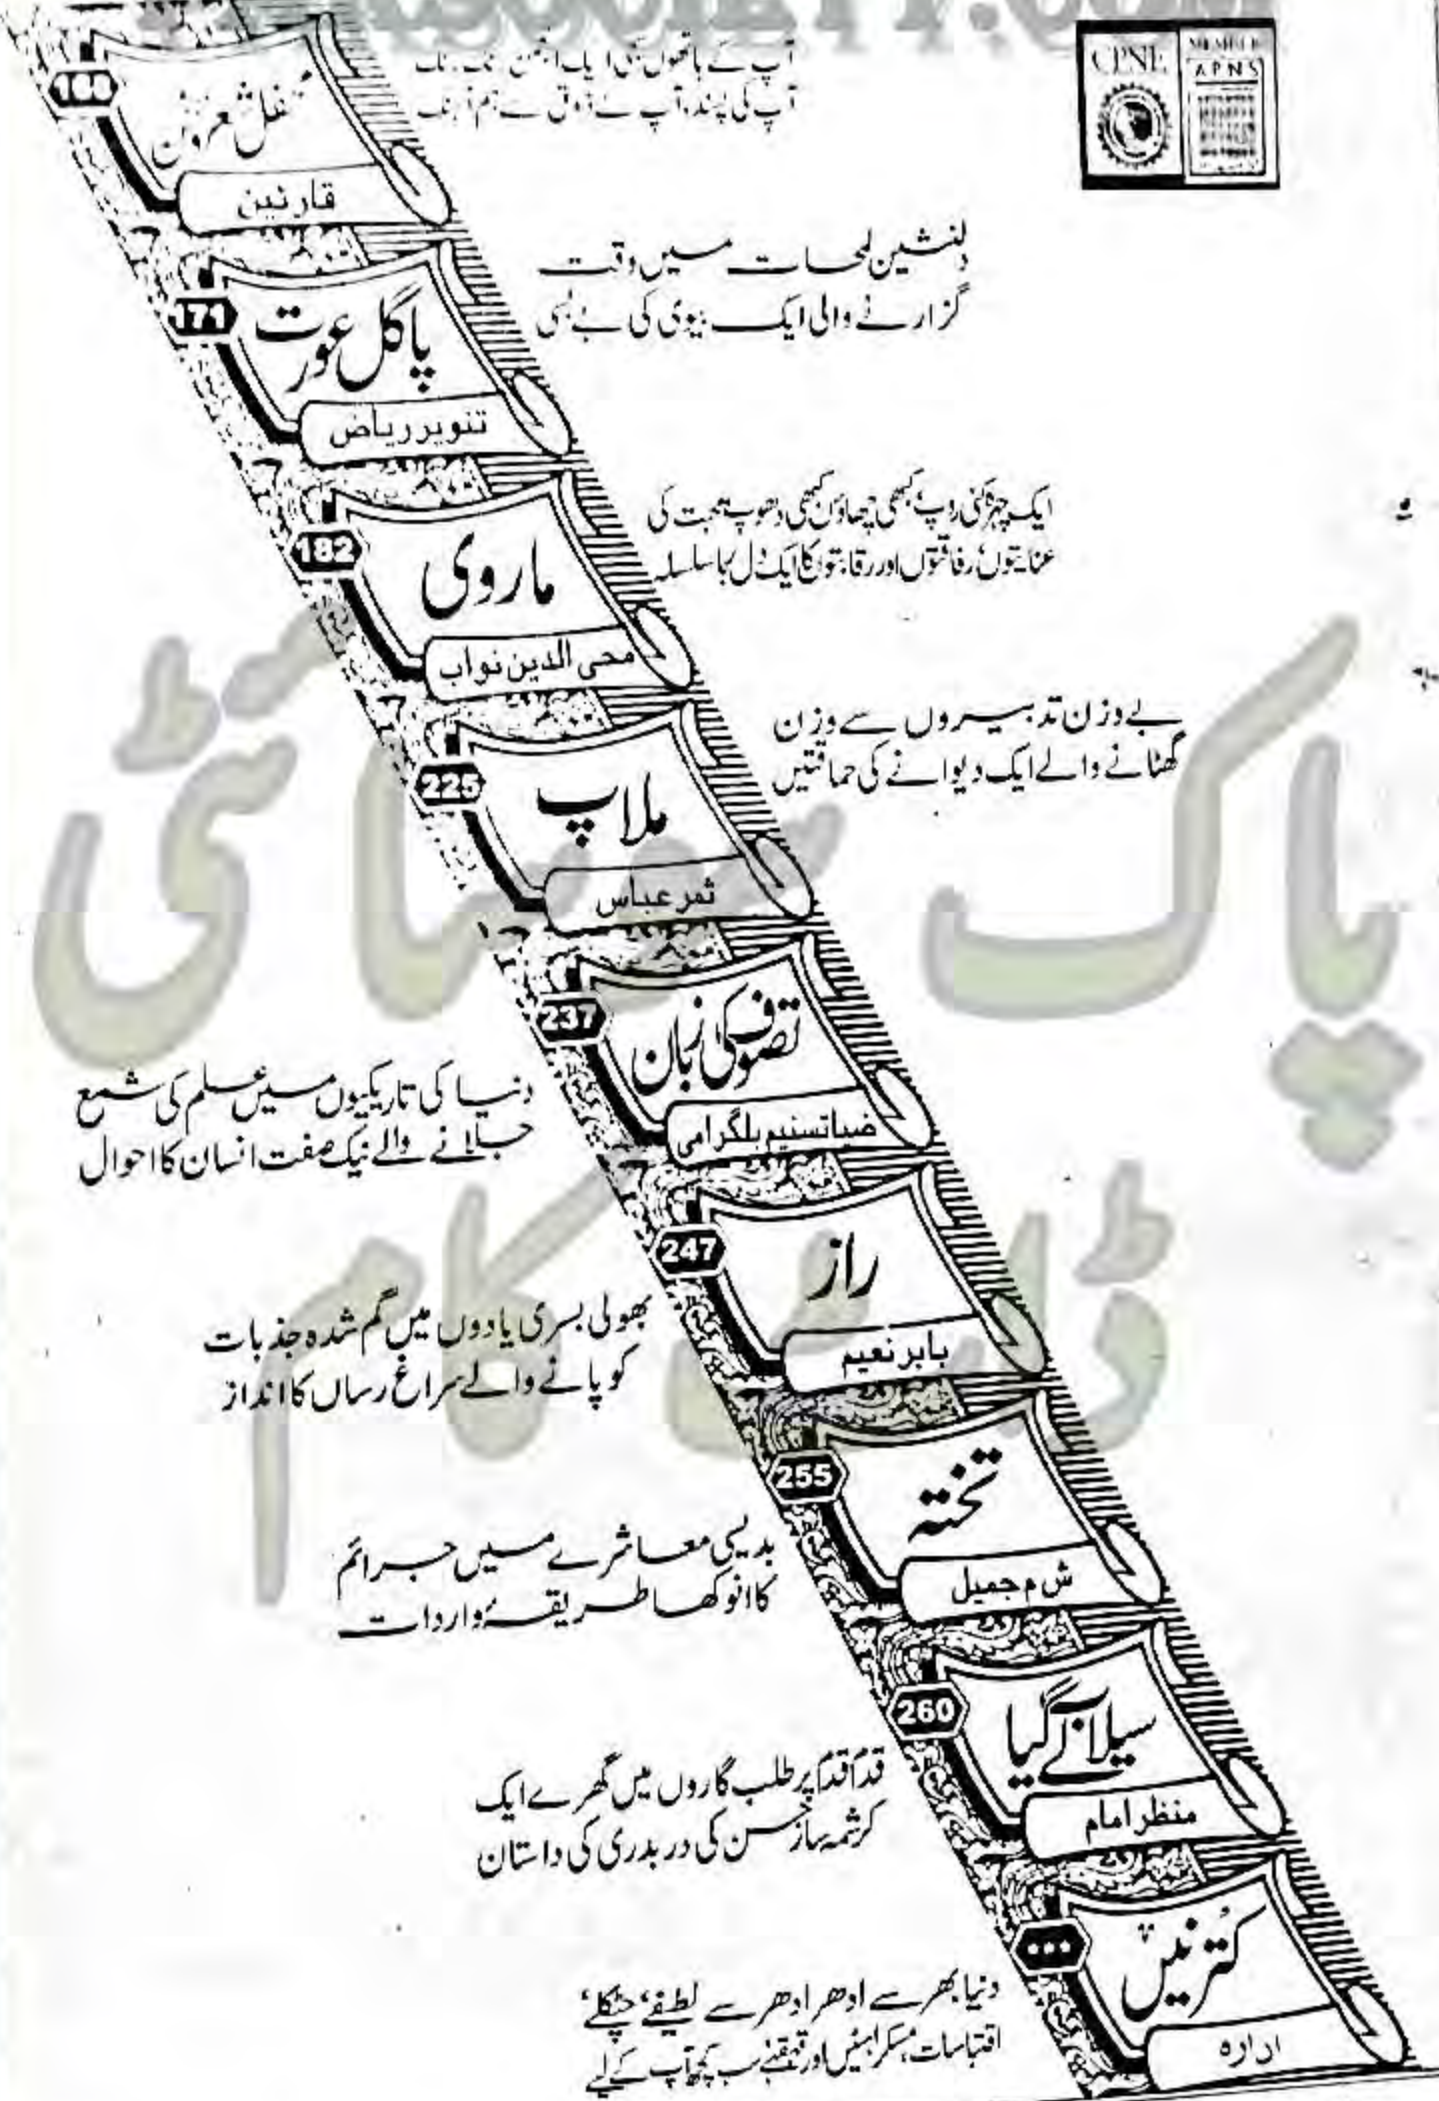 CPNE
MEMBER
APNS
محفل شعروسخن
قارئین
پاگل عورت
171
تنویر ریاض
دلنشین لمحات میں وقت
گزارنے والی ایک بیوی کی بے بسی
ماروی
182
محی الدین نواب
ایک چہرہ کئی روپ کبھی چھاؤں کبھی دھوپ محبت کی
عنایتوں، رفاقتوں اور رقابتوں کا ایک دل ربا سلسلہ
ملاپ
225
ثمر عباس
بے وزن تدبیروں سے وزن
گھٹانے والے ایک دیوانے کی حماقتیں
تصوف کی زبان
237
ضیا تسنیم بلگرامی
دنیا کی تاریکیوں میں علم کی شمع
جلانے والے نیک صفت انسان کا احوال
راز
247
بابر نعیم
بھولی بسری یادوں میں گم شدہ جذبات
کو پانے والے سراغ رساں کا انداز
تختہ
255
ش م جمیل
بدیسی معاشرے میں جرائم
کا انوکھا طریقۂ واردات
سیلاب لے گیا
260
منظر امام
قدم قدم پر طلب گاروں میں گھرے ایک
کرشمہ ساز حسن کی در بدری کی داستان
کترنیں
ادارہ
دنیا بھر سے ادھر ادھر سے لطیفے، چٹکلے،
اقتباسات، مسکراہٹیں اور قہقہے سب کچھ آپ کے لیے
پاک سوسائٹی
ڈاٹ کام